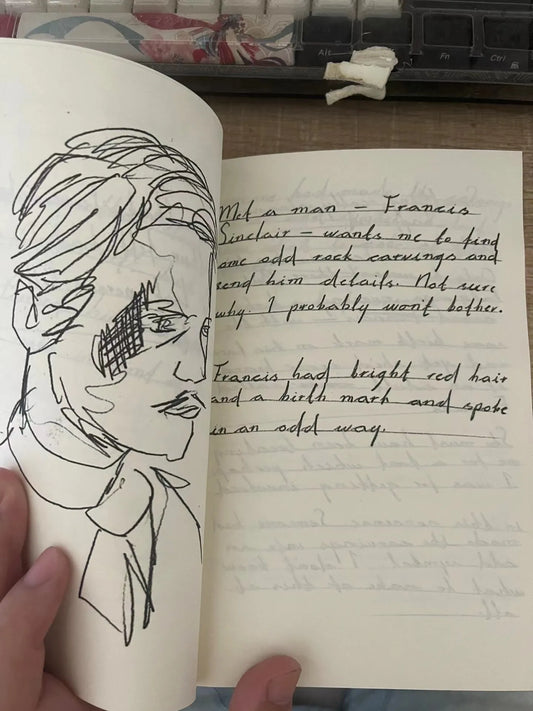 Alt
Fn
Ctrl
Met a man - Francis
Sinclair - wants me to find
some odd rock carvings and
send him details. Not sure
why. I probably won't bother.
Francis had bright red hair
and a birth mark and spoke
in an odd way.